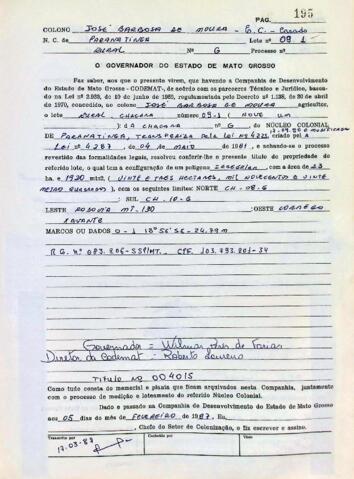 PAG. 195
COLONO JOSÉ BARBOSA DE MOURA - E.C. - Casado
N. C. de PARANATINGA Lote nº 09 1
RURAL Nº G Processo nº
O GOVERNADOR DO ESTADO DE MATO GROSSO
Faz saber, aos que o presente virem, que havendo a Companhia de Desenvolvimento
do Estado de Mato Grosso - CODEMAT-, de acôrdo com os pareceres Técnico e Jurídico, basean-
do na Lei nº 2.938, de 19 de junho de 1965, regulamentada pelo Decreto nº 1.138, de 30 de abril
de 1970, concedido, ao colono JOSÉ BARBOSA DE MOURA agricultor,
o lote RURAL, CHACARA 091 ( NOVE UM
) DA CHACARA G do NÚCLEO COLONIAL
DE PARANATINGA, TRANSFERIDA pela LEI Nº 4225, criado pel A
LEI nº 4.287, de 04 de MAIO de 1981, e achando-se o processo
revestido das formalidades legais, resolveu conferir-lhe o presente título de propriedade do
referido lote, o qual tem a configuração de um polígono IRREGULAR com a área de 23
ha e 1920 mts2 (VINTE E TRES HECTARES, MIL NOVECENTOS E VINTE
METRO QUADRADOS), com os seguintes limites: NORTE CH-08-G
: SUL CH-10-G
LESTE RODOVIA MT-130 :OESTE CORREGO
XAVANTE
MARCOS OU DADOS 0-1 13º56'SE - 24,79m
R.G. nº 083.806-SSP/MT. CPF. 103.793.801-34
Governador = Wilmar Peres de Farias
Diretor da Codemat = Roberto Loureiro
TITULO Nº 004015
Como tudo consta do memorial e planta que ficam arquivados nesta Companhia, juntamente
com o processo de medição e loteamento do referido Núcleo Colonial.
Dado e passado na Companhia de Desenvolvimento do Estado de Mato Grosso
aos 05 dias do mês de FEVEREIRO de 1987, Eu,
, Chefe do Setor de Colonização, o fiz escrever e assino.
Transcrito por
Conferido por
Visto
17.03.87